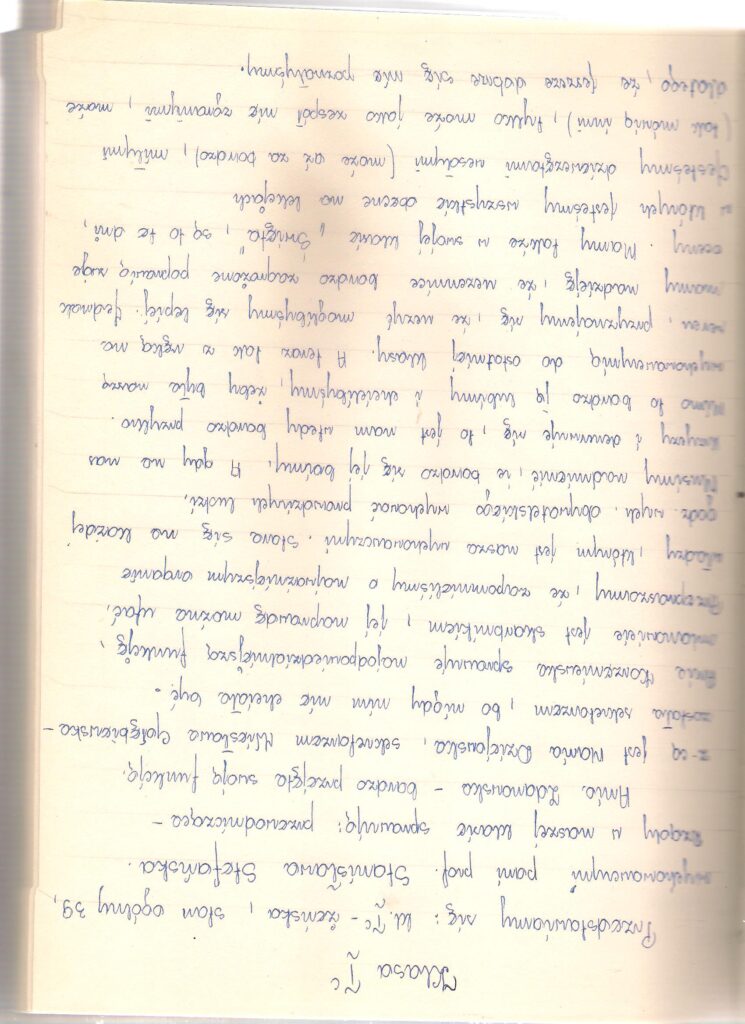 Klasa I c
Przedstawiamy się: kl. I c - żeńska, stan ogólny 39,
wychowawczyni pani prof. Stanisława Stefańska.
Rządy w naszej klasie sprawują: przewodnicząca -
Ania Zdanowska - bardzo przejęta swoją funkcją,
z-cą jest Wania Dziejowska, sekretarzem Wiesława Gołębiewska -
została sekretarzem, bo nigdy nim nie chciała być.
Ania Korzeniewska sprawuje najodpowiedzialniejszą funkcję,
mianowicie jest skarbnikiem, jej naprawdę można ufać.
Przepraszamy, że zapomniałyśmy o najważniejszym organie
władzy, którym jest nasza wychowawczyni. Stara się na każdej
godz. wych. obywatelskiego wychować prawdziwych ludzi.
Musimy nadmienić, że bardzo się jej boimy. A gdy na nas
krzyczy i denerwuje się, to jest nam wtedy bardzo przykro.
Mimo to bardzo ją lubimy i chciałybyśmy, żeby była naszą
wychowawczynią do ostatniej klasy. A teraz tak z ręką na
sercu, przyznajemy się, że uczyć mogłybyśmy się lepiej. Jednak
mamy nadzieję, że uczennice bardzo zagrożone poprawią swoje
oceny. Mamy także w swojej klasie "Święta", są to te dni,
w których jesteśmy wszystkie obecne na lekcjach
Jesteśmy dziewczętami wesołymi (może aż za bardzo), miłymi
(tak mówią inni), tylko może jako zespół nie zgranymi, może
dlatego, że jeszcze dobrze się nie poznałyśmy.